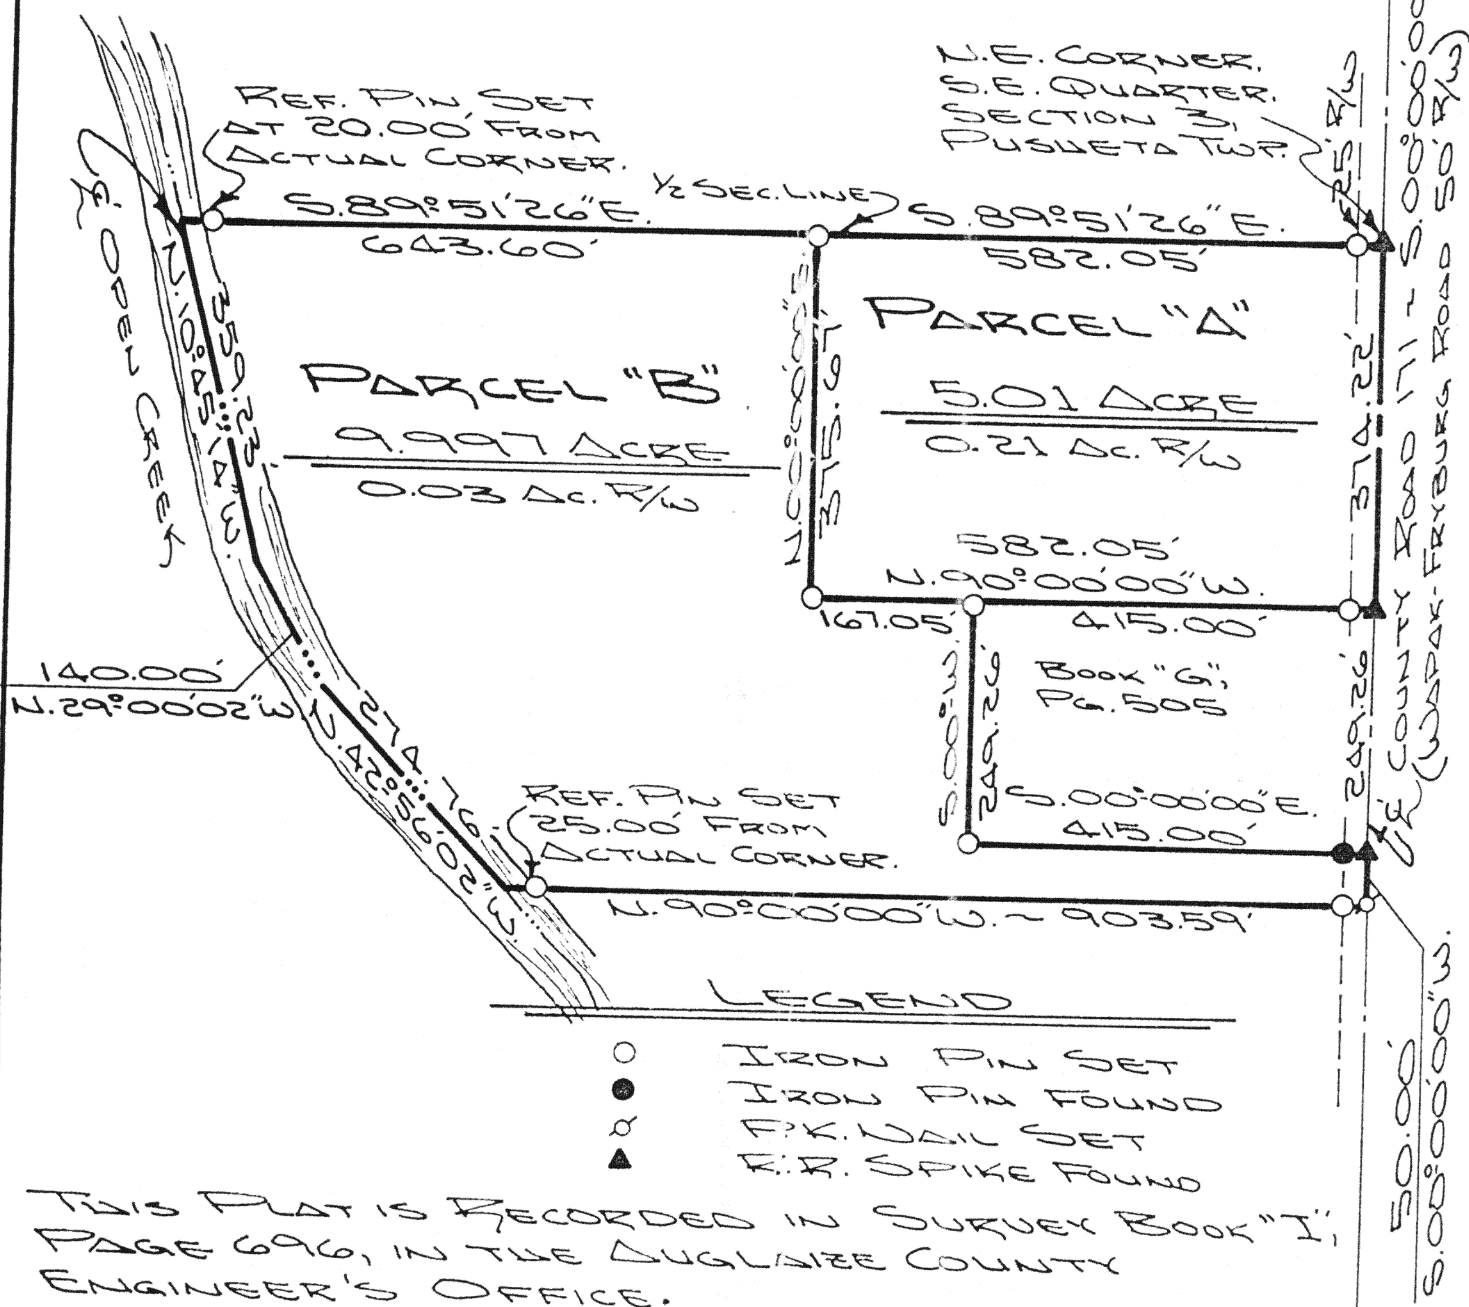 N.E. CORNER,
S.E. QUARTER,
SECTION 3,
PUSHETA TWP.
REF. PIN SET
AT 20.00' FROM
ACTUAL CORNER.
25' R/W
½ SEC. LINE
S.89°51'26"E.
643.60'
S.89°51'26"E.
582.05'
℄ OPEN CREEK
N.10°45'14"W.
359.23'
PARCEL "B"
9.997 ACRE
0.03 AC. R/W
N.00°00'00"E.
375.67'
PARCEL "A"
5.01 ACRE
0.21 AC. R/W
374.22'
℄ COUNTY ROAD 171 ~ S.00°00'00"
(WAPAK-FRYBURG ROAD 50' R/W)
582.05'
N.90°00'00"W.
167.05'
415.00'
140.00'
N.29°00'02"W.
N.42°56'02"W.
274.76'
S.00°W.
249.26'
BOOK "G",
PG. 505
249.26'
S.00°00'00"E.
415.00'
REF. PIN SET
25.00' FROM
ACTUAL CORNER.
N.90°00'00"W. ~ 903.59'
50.00'
S.00°00'00"W.
LEGEND
IRON PIN SET
IRON PIN FOUND
P.K. NAIL SET
R.R. SPIKE FOUND
THIS PLAT IS RECORDED IN SURVEY BOOK "I",
PAGE 696, IN THE AUGLAIZE COUNTY
ENGINEER'S OFFICE.